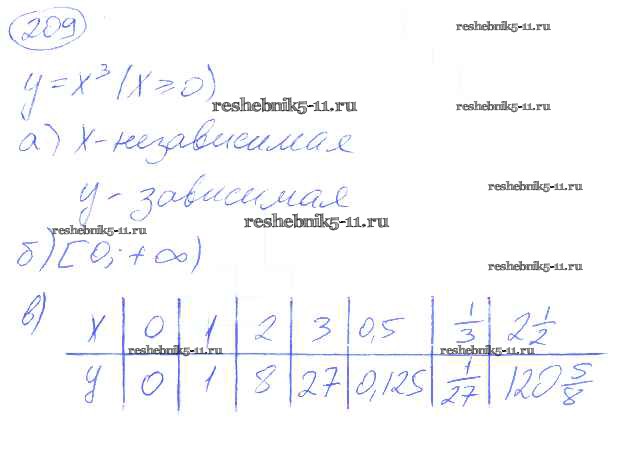 209
reshebnik5-11.ru
y = x³ (x ≥ 0)
reshebnik5-11.ru
reshebnik5-11.ru
а) x - независимая
reshebnik5-11.ru
y - зависимая
reshebnik5-11.ru
reshebnik5-11.ru
б) [0; +∞)
reshebnik5-11.ru
в) x | 0 | 1 | 2 | 3 | 0,5 | 1/3 | 2 1/2
reshebnik5-11.ru
reshebnik5-11.ru
y | 0 | 1 | 8 | 27 | 0,125 | 1/27 | 120 5/8